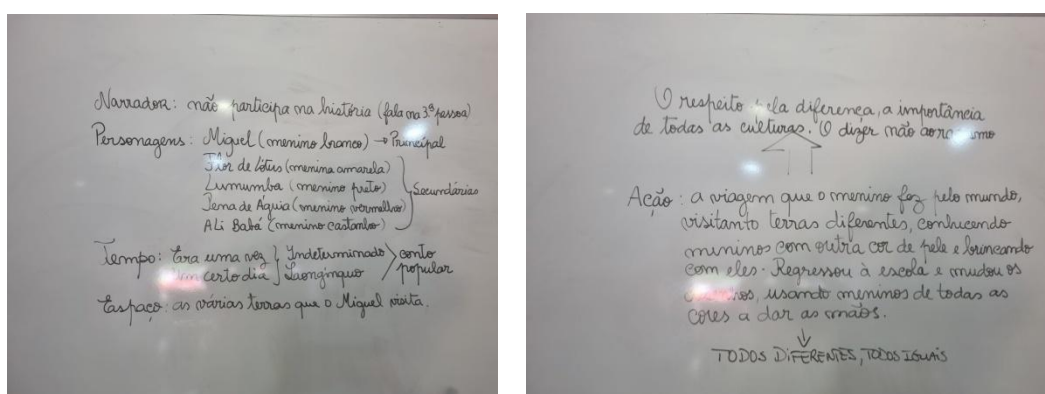 Narrador: não participa na história (fala na 3.ª pessoa)
Personagens: Miguel (menino branco) → Principal
Flor de Lótus (menina amarela)
Lumumba (menino preto)
Pena de Águia (menino vermelho)
Ali Babá (menino castanho)
Secundárias
Tempo: Era uma vez } Indeterminado
certo dia } Longínquo
conto popular
Espaço: as várias terras que o Miguel visita.
O respeito pela diferença, a importância
de todas as culturas. O dizer não ao
Ação: a viagem que o menino fez pelo mundo,
visitanto terras diferentes, conhecendo
meninos com outra cor de pele e brincando
com eles. Regressou à escola e mudou os
usando meninos de todas as
cores a dar as mãos.
↓
TODOS DIFERENTES, TODOS IGUAIS